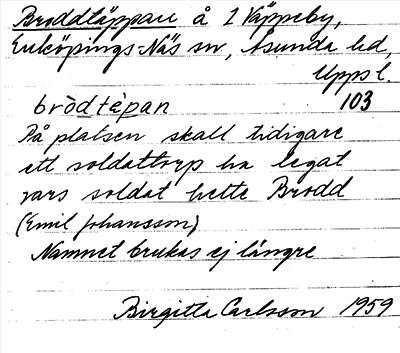 Broddtäppan å 1 Väppeby,
Enköpings-Näs sn, Åsunda hd,
Uppsl.
bròdtèpan 103
På platsen skall tidigare
ett soldattorp ha legat
vars soldat hette Brodd
(Emil Johansson)
Namnet brukas ej längre
Birgitta Carlsson 1959